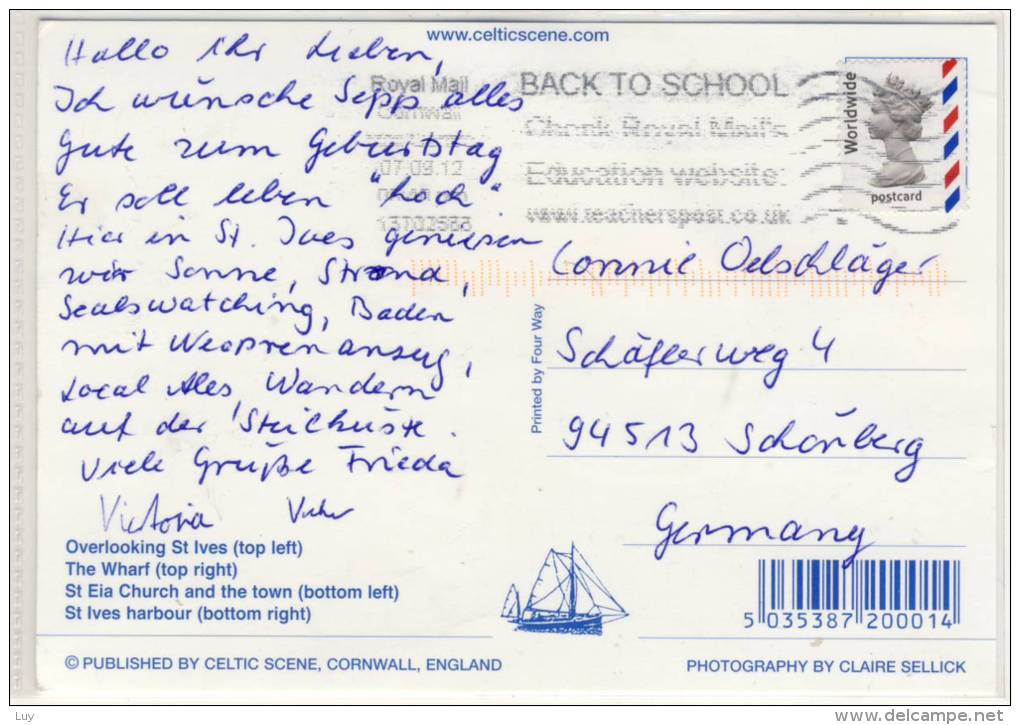 www.celticscene.com
Hallo ihr Lieben,
Ich wünsche Sepp alles
Gute zum Geburtstag
Er soll leben "hoch"
Hier in St. Ives geniessen
wir Sonne, Strand,
Sealswatching, Baden
mit Neoprenanzug,
Local Ales, Wandern
auf der Steilküste.
Viele Grüße Frieda
Victoria
Overlooking St Ives (top left)
The Wharf (top right)
St Eia Church and the town (bottom left)
St Ives harbour (bottom right)
© PUBLISHED BY CELTIC SCENE, CORNWALL, ENGLAND
Royal Mail
Cornwall
07.09.12
13702588
BACK TO SCHOOL
Check Royal Mail's
Education website:
www.teacherspost.co.uk
Worldwide
postcard
Printed by Four Way
Connie Oelschläger
Schäflerweg 4
94513 Schönberg
Germany
5 035387 200014
PHOTOGRAPHY BY CLAIRE SELLICK
Luy
www.delcampe.net